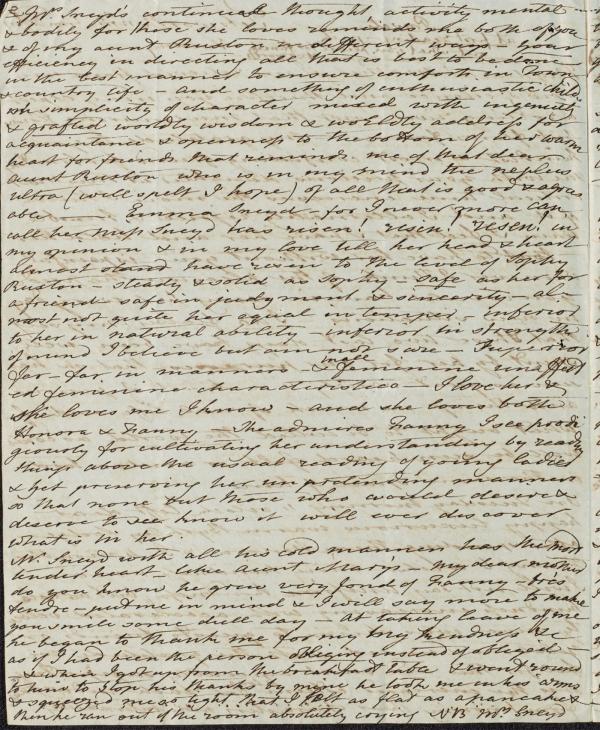 Mrs. Sneyd's continual thought activity mental
& bodily for those she loves reminds me both of you
& of my aunt Ruxton in different ways - your
efficiency in directing all that is best to be done
in the best manner to ensure comfort in Town
& country life - and something of enthusiastic child
ish simplicity of character mixed with ingenuity
& grafted worldly wisdom & worldly address for
acquaintance & openness to the bottom of her warm
heart for friends that reminds me of that dear
aunt Ruxton who is in my mind the neplus
ultra (well spelt I hope) of all that is good & agree
able — Emma Sneyd - for I never more can
call her Miss Sneyd has risen! risen! risen! in
my opinion & in my love till her head & heart
almost stand have risen to the level of Sophy
Ruxton - steady & solid as Sophy - safe as her for
a friend - safe in judgment & sincerity - al-
most not quite her equal in temper - inferior
to her in natural ability - inferior in strength
of mind I believe but am not sure -
far - far in manners & feminine unaffect
ed feminine characteristics - I love her &
she loves me I know - and she loves both
Honora & Fanny - She admires Fanny I see prodi
giously for cultivating her understanding by reading
things above the usual reading of young ladies
& yet preserving her unpretending manners
so that none but those who would desire &
deserve to see know it will ever discover
what is in her.
Mr. Sneyd with all his cold manner has the most
tender heart - like aunt Mary's - my dear mother
do you know he grew very fond of Fanny - tres
tendre - put me in mind & I will say more to make
you smile some dull day - At taking leave of me
he began to thank me for my my kindness &c
as if I had been the person obliging instead of obliged -
& when I got up from the breakfast table & went round
to him to stop his thanks by mine he took me in his arms
& squeezed me so tight that I felt as flat as a pancake &
then he ran out of the room absolutely crying NB Mrs. Sneyd